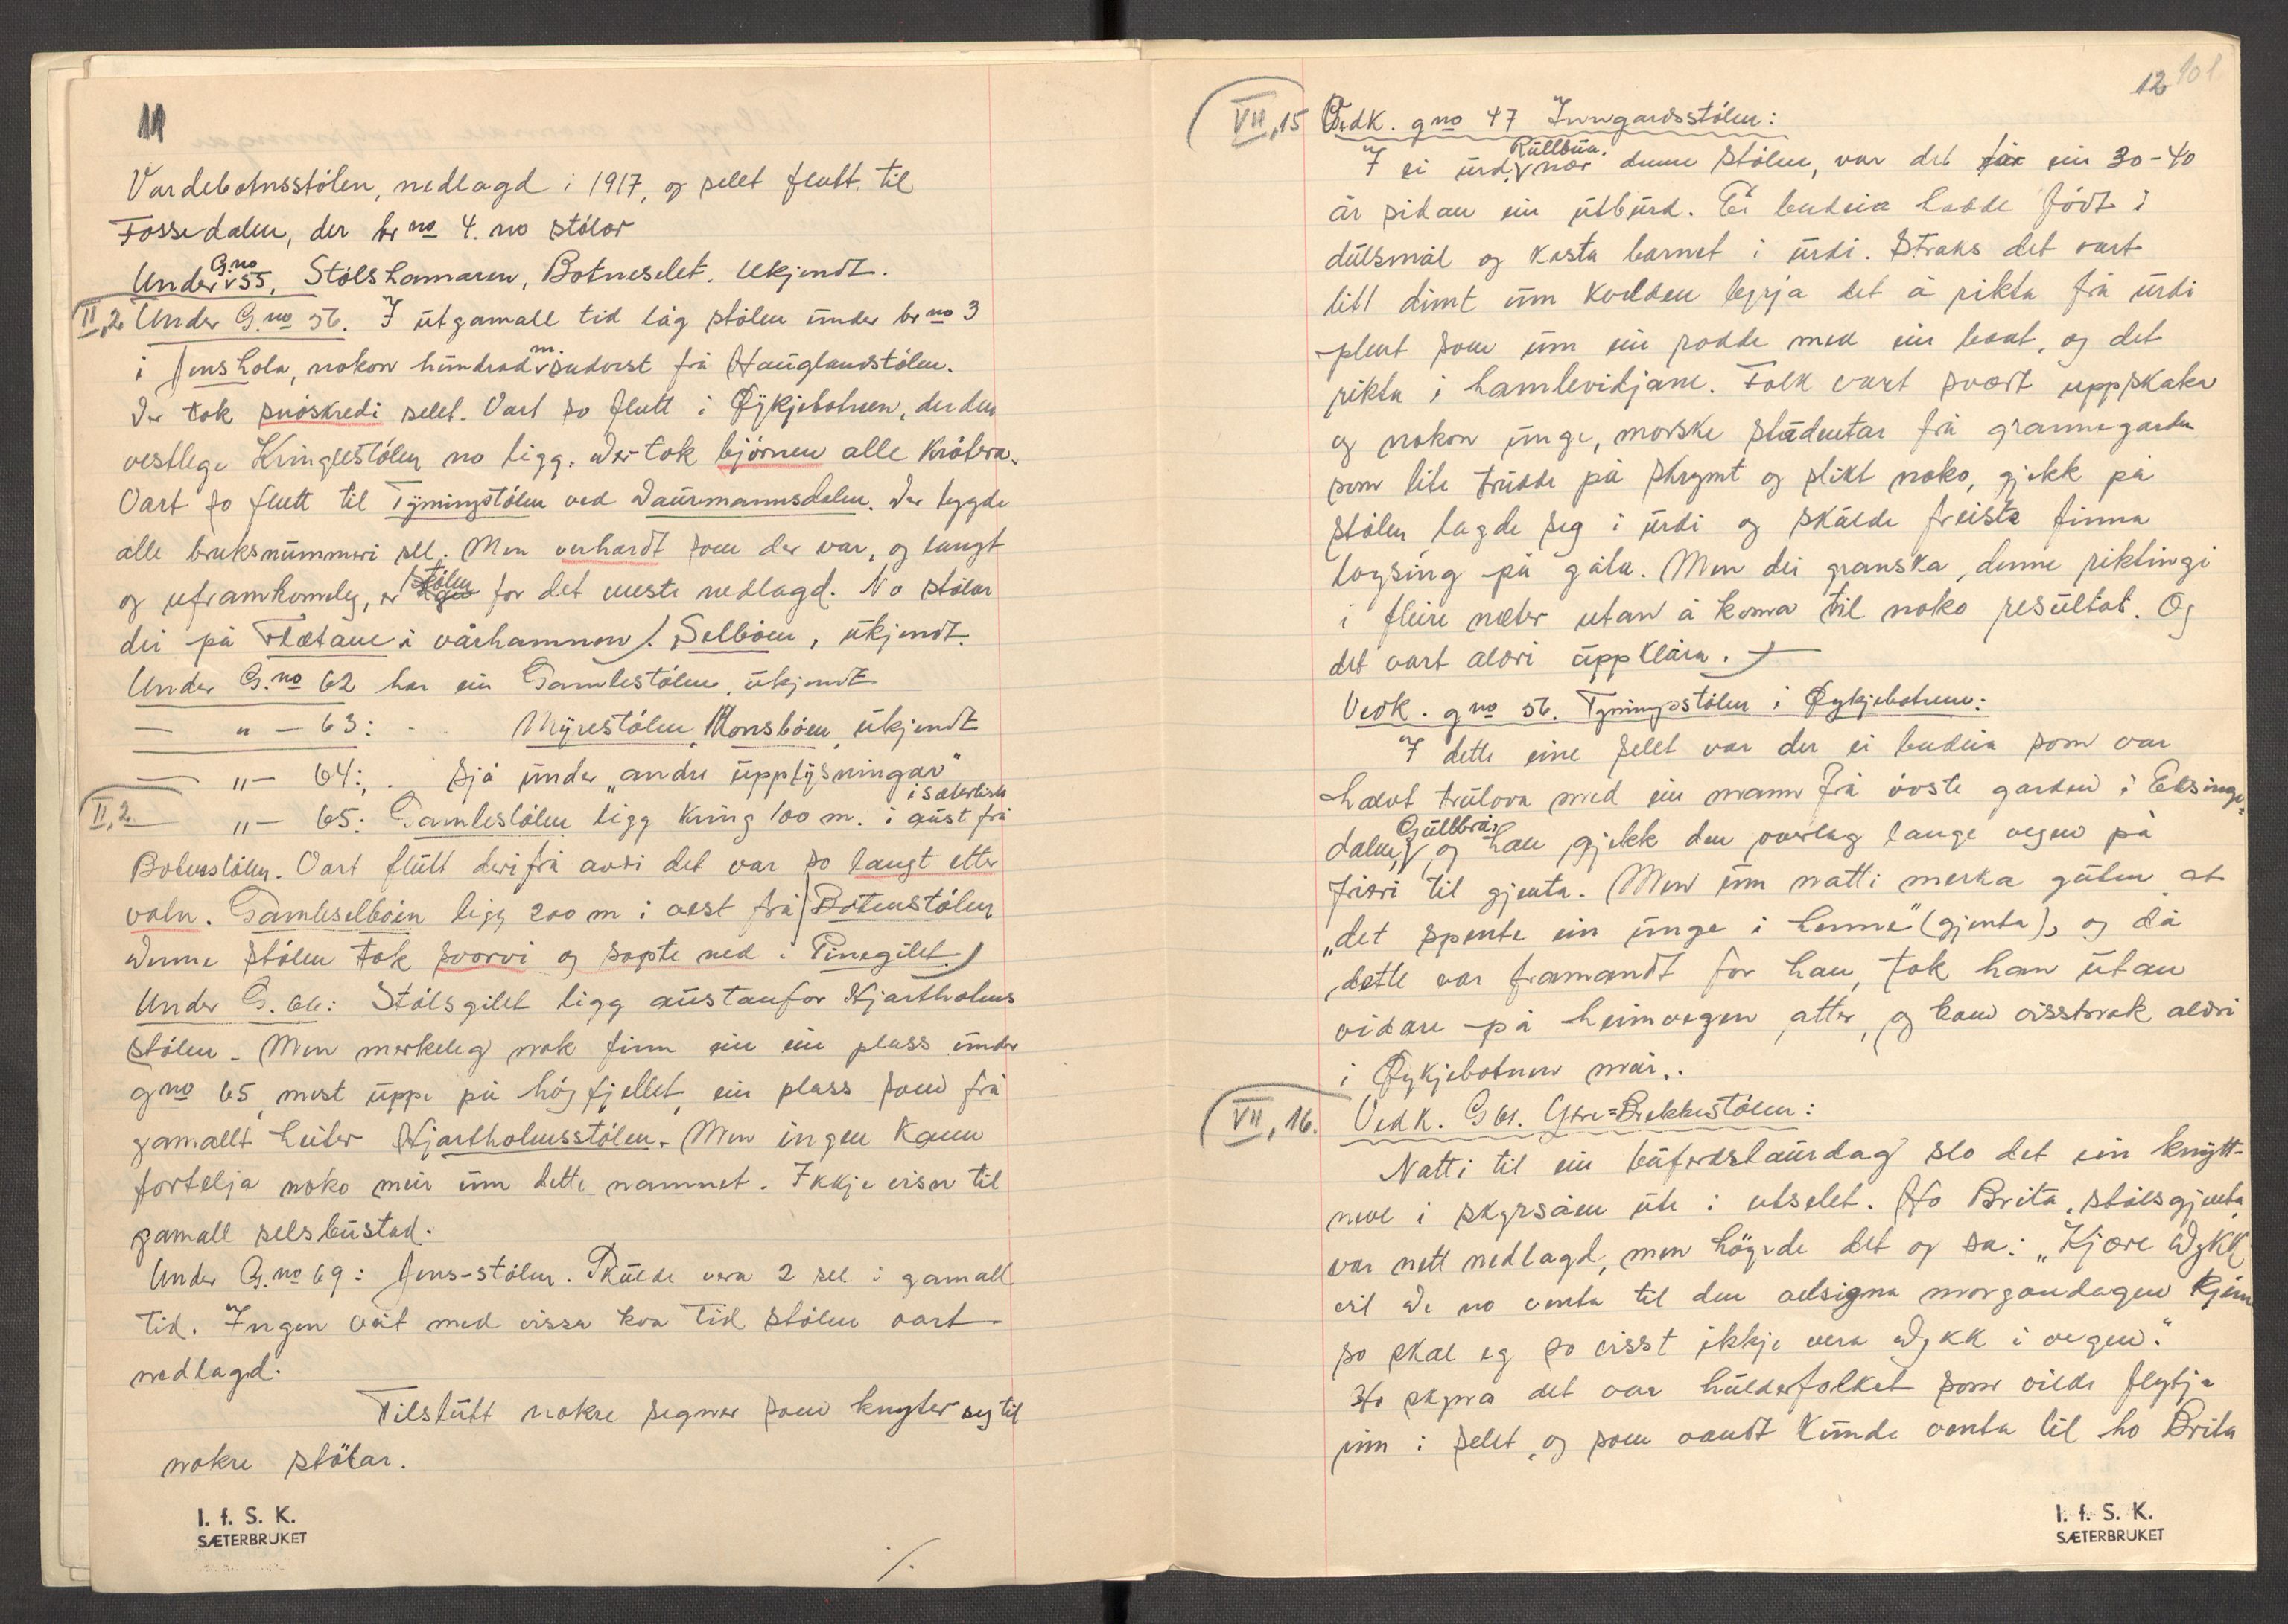 11
Vardebotnsstölen, nedlagd i 1917, og selet flutt til
Fossedalen, der br no 4. no stölar
Under G.no 55, Stölshamaren, Botneselet. Ukjendt.
II,2 Under G.no 56. I útgamall tid låg stölen ùnder br no 3
i Jens hola, nokon hùndrad m. sudvest frå Haùglandstölen.
Der tok snöskredi selet. Vart so flutt i Öykjebotnen, der den
vestlege Kringlestölen no ligg. Der tok björnen alle kröters.
Vart so flutt til Tyningstölen ved Daùrmannsdalen. Der bygde
alle bruksnùmmeri sel. Men verhardt som der var, og langt
og uframkomeleg, er stölen for det meste nedlagd. No stölar
dei på Flætane i vårhamnen). Selböen, ùkjendt.
Under G.no 62 har ein Gamlestölen, ùkjendt
— " — 63: Myrestölen, Monsböen, ùkjendt
— " — 64: Sjå ùnder „andre ùpplysningar"
i Sæterlista
II,2 — " — 65: Gamlestölen ligg kring 100 m. i aùst frå
Botnestölen. Vart flùtt derifrå avdi det var so langt etter
vatn. Gamleselböen ligg 200 m i vest frå Botenstölen
Denne stölen tok svorvi og sopte ned i Pinegilet.)
Under G. 66: Stölsgilet ligg aùstanfor Hjartholms
stölen. Men merkeleg nok finn ein ein plass ùnder
gno 65, mest ùppe på högfjellet, ein plass som frå
gamallt heiter Hjartholmsstölen. Men ingen kann
fortelja noko meir ùm dette namnet. Ikkje viser til
gamall selsbùstad.
Under G.no 69: Jens-stölen. Skùlde vera 2 sel i gamall
tid. Ingen veit med vissa kva tid stölen vart
nedlagd.
Tilslùtt nokre segner som knyter seg til
nokre stölar.
I. f. S. K.
SÆTERBRUKET
./.
12 101
VII,15 Vedk. gno 47 Inngardsstölen:
I ei ùrd, Rùllbùa. nær denne stölen, var det ein 30-40
år sidan ein ùtbùrd. Ei budeia hadde födt i
dùlsmål og kasta barnet i ùrdi. Straks det vart
litt dimt ùm kvelden byrja det å rikta frå ùrdi
plent som ùm ein rodde med ein boat, og det
rikta i hamlevidjane. Folk vart svært uppskaka
og nokon ùnge, morske stùdentar frå grannegarden
som lite trùdde på skrymt og slikt noko, gjekk på
stölen lagde seg i ùrdi og skùlde freista finna
loysing på gåta. Men dei granska denne riktingi
i fleire næter utan å koma til noko resùltat. Og
det vart aldri ùppklåra.
Vedk. gno 56. Tyningsstölen i Öykjebotnen:
I dette eine selet var der ei budeia som var
halvt trùlova med ein mann frå övste garden i Eksinge=
dalen, Gùllbrå, og han gjekk den overlag lange vegen på
friari til gjenta. Men ùm natti merka gùten at
„det spente ein ùnge i henne" (gjenta), og då
dette var framandt for han, tok han ùtan
vidare på heimvegen atter, og kom visstnok aldri
i Öykjebotnen meir.
VII, 16. Vedk. G 61. Ytre=Brekkestölen:
Natti til ein bùferdslaùrdag slo det ein knytt-
neve i skyrsåen ùte i utselet. Ho Brita, stölsgjenta,
var nett nedlagd, men höyrde det og sa: „Kjære Dykk
vil De no venta til den velsigna morgondagen kjem
so skal eg so visst ikkje vera Dykk i vegen."
Ho skjyna det var hùlderfolket som vilde flytja
inn i selet, og som vandt kùnde venta til ho Brita
I. f. S. K.
SÆTERBRUKET